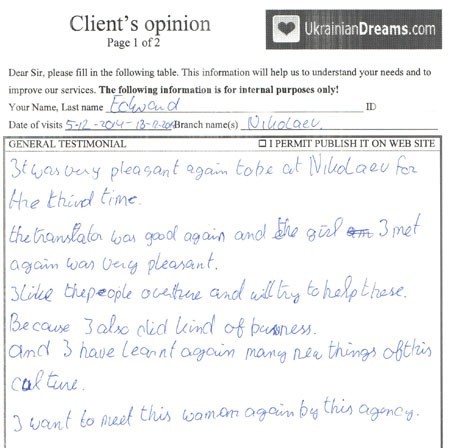 Client's opinion
Page 1 of 2
UkrainianDreams.com
Dear Sir, please fill in the following table. This information will help us to understand your needs and to
improve our services. The following information is for internal purposes only!
Your Name, Last name Edward ID
Date of visits 5-12-2014-13-12-2014 Branch name(s) Nikolaev
GENERAL TESTIMONIAL ☐ I PERMIT PUBLISH IT ON WEB SITE
It was very pleasant again to be at Nikolaev for
the third time.
the translator was good again and the girl I met
again was very pleasant.
I like the people overthere and will try to help these.
Because I also did kind of busness.
and I have learnt again many new things of this
culture.
I want to meet this woman again by this agency.